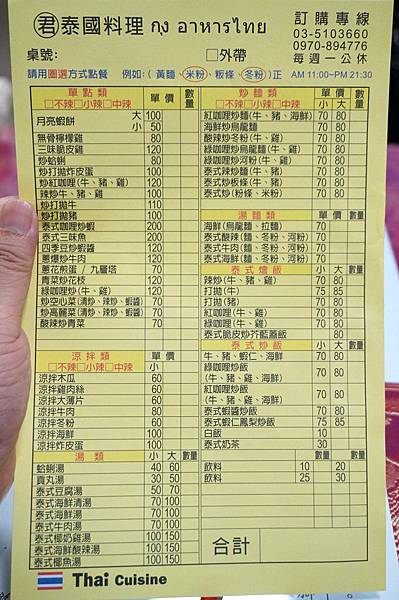 君泰國料理 กุง อาหารไทย
訂購專線
03-5103660
0970-894776
每週一公休
桌號: □外帶
請用圈選方式點餐 例如:(黃麵、米粉、粄條、冬粉)正
AM 11:00~PM 21:30
單點類 單價 數量
□不辣□小辣□中辣
月亮蝦餅 大 100
小 50
無骨檸檬雞 80
三味脆皮雞 120
炒蛤蜊 80
炒打拋炸皮蛋 100
炒紅咖哩(牛、豬、雞) 100
辣炒牛、豬、雞 100
炒打拋牛 110
炒打拋豬 100
泰式咖哩炒蝦 200
泰式三味魚 200
四季豆炒蝦醬 120
蔥爆炒牛肉 120
蔥花煎蛋 / 九層塔 70
青菜炒花枝 120
綠咖哩炒(牛、雞) 100
炒空心菜(清炒、辣炒、蝦醬) 100
炒高麗菜(清炒、辣炒、蝦醬) 100
酸辣炒青菜 70
涼拌類 單價 數量
□不辣□小辣□中辣 小
涼拌木瓜 60
涼拌雞肉絲 60
涼拌大薄片 60
涼拌牛肉 80
涼拌冬粉 60
涼拌海鮮 100
涼拌炸皮蛋 100
湯類 小 大 數量
蛤蜊湯 40 60
貢丸湯 30 50
泰式豆腐湯 50 70
泰式海鮮清湯 70 100
泰式海鮮湯 70 100
泰式牛肉湯 70 100
泰式椰奶雞湯 100 150
泰式海鮮酸辣湯 100 150
泰式椰魚湯 100 150
炒麵類 單價 數量
□不辣□小辣□中辣 小 大
紅咖哩炒麵(牛、豬、海鮮) 70 80
海鮮炒烏龍麵 70 80
酸辣炒冬粉(牛、雞) 70 80
綠咖哩炒烏龍麵(牛、雞) 70 80
綠咖哩炒河粉(牛、雞) 70 80
泰式辣炒麵(牛、豬) 70 80
泰式炒粄條(牛、豬) 70 80
泰式炒(粉條、米粉) 70 80
湯麵類 單價 數量
海鮮(烏龍麵、拉麵) 70
泰式酸辣(麵、冬粉、河粉) 70
泰式牛肉(麵、冬粉、河粉) 70
泰式海鮮(麵、冬粉、河粉) 70
泰式燴飯 小 大 數量
辣炒(牛、豬、雞) 70 80
打拋(牛) 75 85
打拋(豬) 70 80
紅咖哩(牛、雞) 70 80
綠咖哩(牛、雞) 70 80
泰式脆皮炒芥藍蓋飯 80
泰式炒飯 小 大 數量
牛、豬、蝦仁、海鮮 70 80
綠咖哩炒飯
(牛、雞、海鮮) 70 80
紅咖哩炒飯
(牛、豬、雞、海鮮) 70 80
泰式蝦醬炒飯 70 80
泰式蝦仁鳳梨炒飯 75 85
白飯 10
泰式奶茶 30
飲料 10 20
飲料 25 30
合計
Thai Cuisine